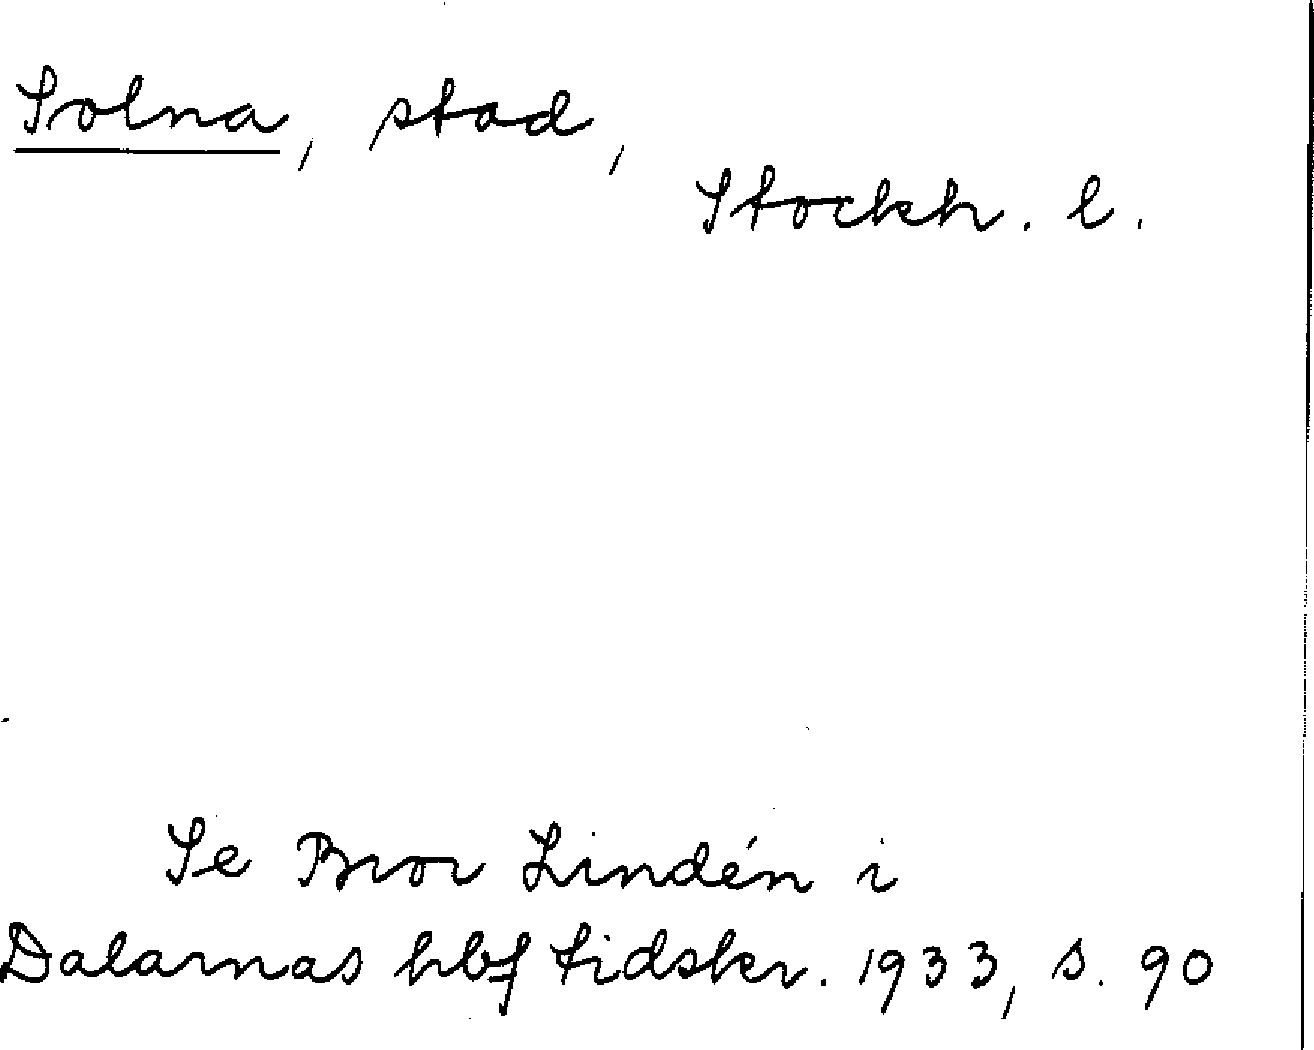 Solna, stad,
Stockh. l.
Se Bror Lindén i
Dalarnas hbf tidskr. 1933, s. 90